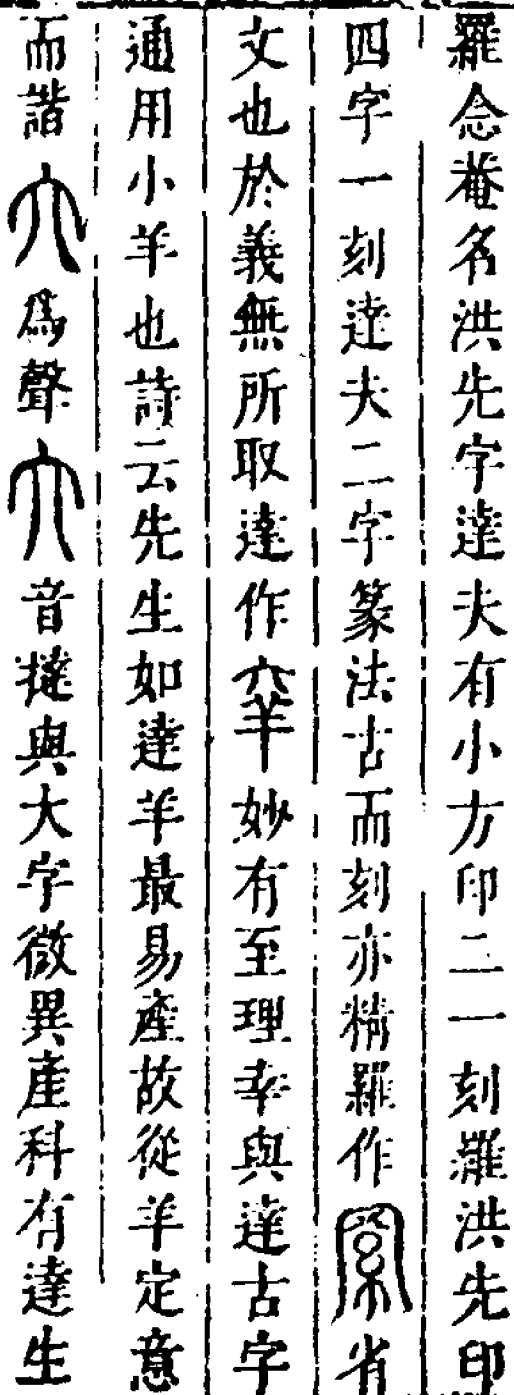 羅念菴名洪先字達夫有小方印二一刻羅洪先印
四字一刻達夫二字篆法古而刻亦精羅作省
文也於義無所取達作羍妙有至理幸與達古字
通用小羊也詩云先生如達羊最易產故從羊定意
而諧為聲音撻與大字微異產科有達生